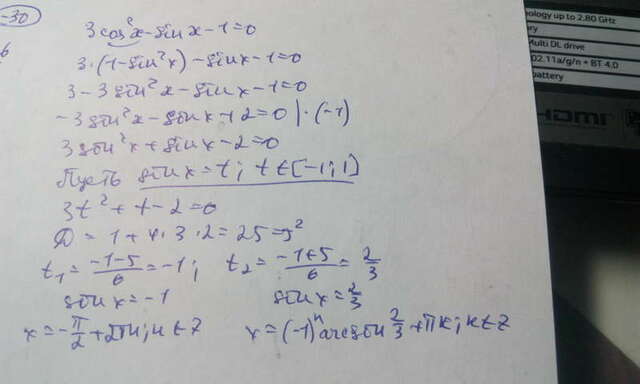 -30)
6
3cos²x - sin x - 1 = 0
3·(1 - sin²x) - sin x - 1 = 0
3 - 3sin²x - sin x - 1 = 0
-3sin²x - sin x + 2 = 0 |·(-1)
3sin²x + sin x - 2 = 0
Пусть sin x = t; t ∈ [-1; 1]
3t² + t - 2 = 0
D = 1 + 4·3·2 = 25 = 5²
t₁ = (-1-5)/6 = -1; t₂ = (-1+5)/6 = 2/3
sin x = -1 sin x = 2/3
x = -π/2 + 2πn; n ∈ Z x = (-1)ⁿ arcsin 2/3 + πk; k ∈ Z
ology up to 2.80 GHz
ry
Multi DL drive
02.11a/g/n + BT 4.0
battery
HDMI